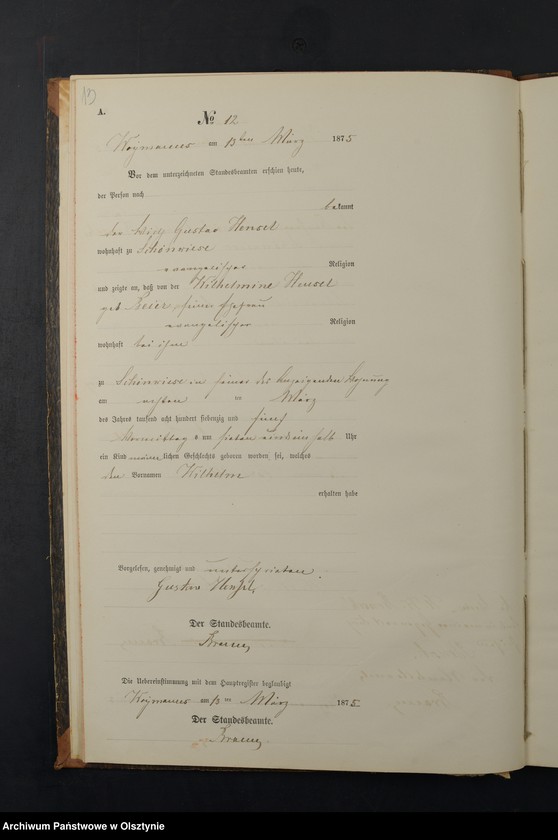 13
A.
No 12
am 13ten März 1875
Vor dem unterzeichneten Standesbeamten erschien heute,
der Person nach
bekannt
der Gustav Hensel
wohnhaft zu Schönwiese
evangelischer Religion
und zeigte an, daß von der Wilhelmine Hensel
geb seiner Ehefrau
evangelischer Religion
wohnhaft bei ihm
zu Schönwiese in seiner des Anzeigenden Wohnung
am achten ten März
des Jahres tausend acht hundert siebenzig und fünf
Vormittag s um sieben und ein halb Uhr
ein Kind männlichen Geschlechts geboren worden sei, welches
den Vornamen Wilhelm
erhalten habe
Vorgelesen, genehmigt und unterschrieben.
Gustav Hensel,
Der Standesbeamte.
Die Uebereinstimmung mit dem Hauptregister beglaubigt
am 13 ten März 1875
Der Standesbeamte.
Archiwum Państwowe w Olsztynie